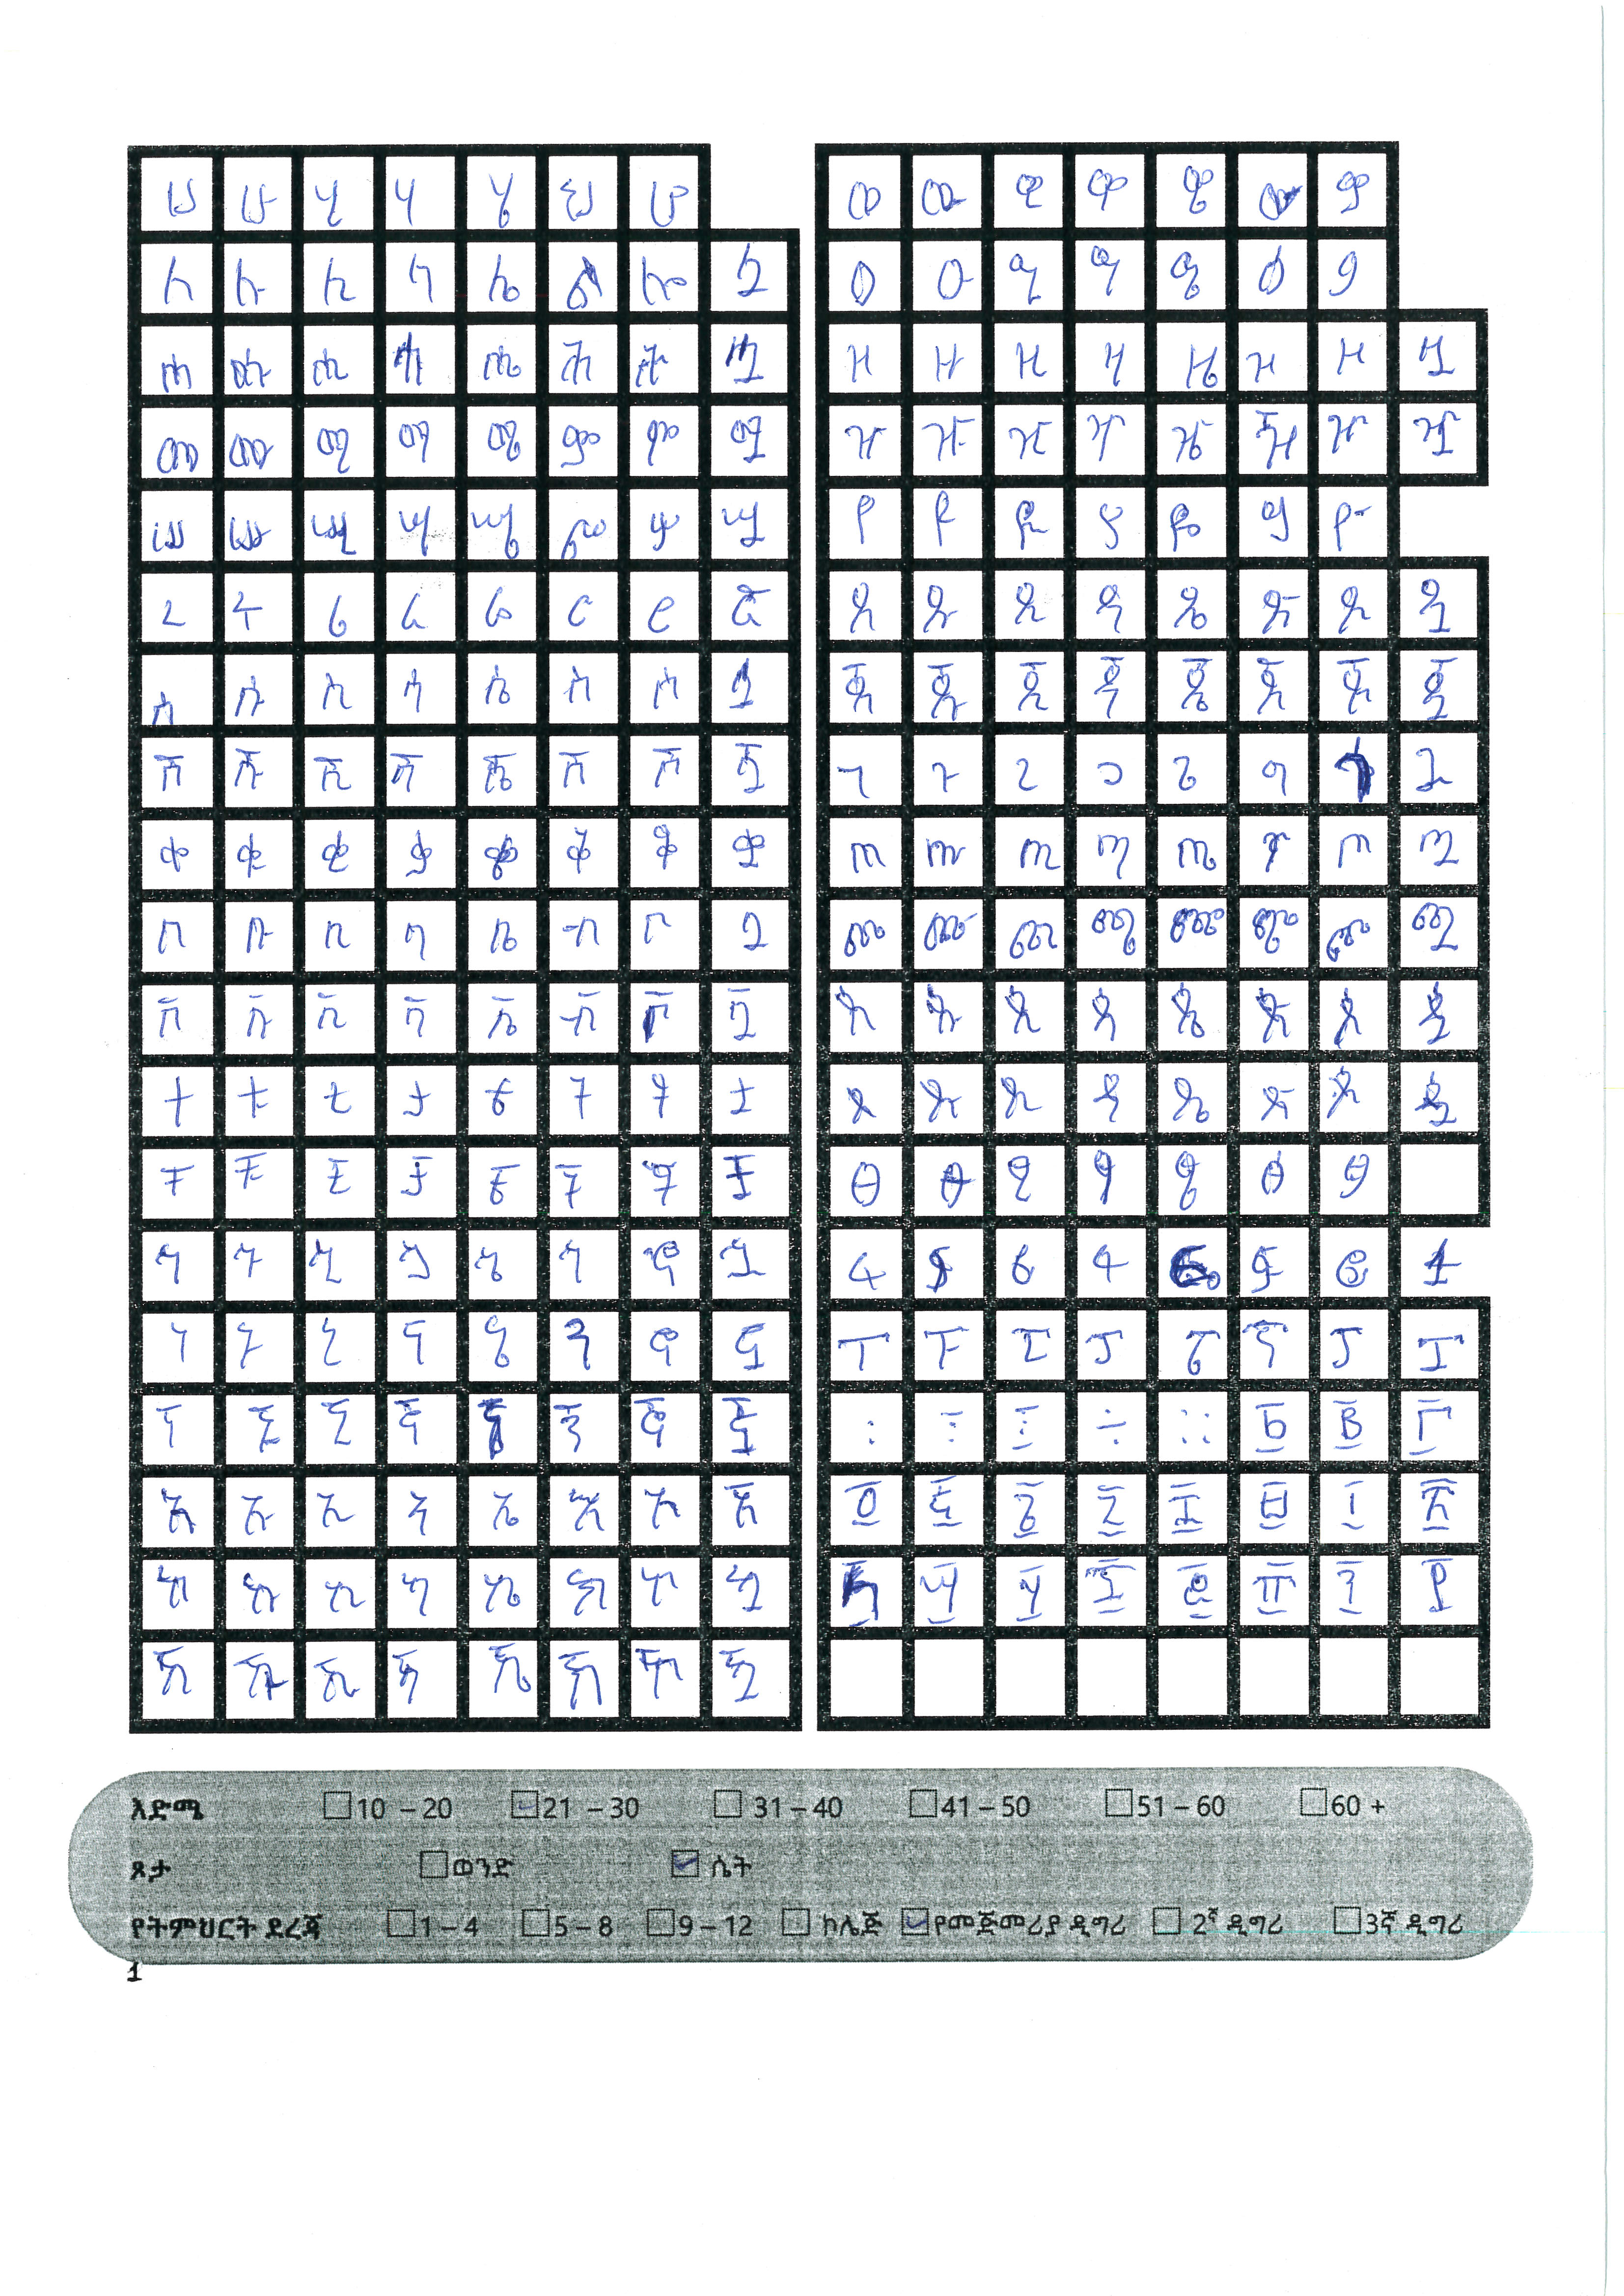 ሀ ሁ ሂ ሃ ሄ ህ ሆ
ለ ሉ ሊ ላ ሌ ል ሎ ሏ
ሐ ሑ ሒ ሓ ሔ ሕ ሖ ሗ
መ ሙ ሚ ማ ሜ ም ሞ ሟ
ሠ ሡ ሢ ሣ ሤ ሥ ሦ ሧ
ረ ሩ ሪ ራ ሬ ር ሮ ሯ
ሰ ሱ ሲ ሳ ሴ ስ ሶ ሷ
ሸ ሹ ሺ ሻ ሼ ሽ ሾ ሿ
ቀ ቁ ቂ ቃ ቄ ቅ ቆ ቋ
በ ቡ ቢ ባ ቤ ብ ቦ ቧ
ቨ ቩ ቪ ቫ ቬ ቭ ቮ ቯ
ተ ቱ ቲ ታ ቴ ት ቶ ቷ
ቸ ቹ ቺ ቻ ቼ ች ቾ ቿ
ኀ ኁ ኂ ኃ ኄ ኅ ኆ ኋ
ነ ኑ ኒ ና ኔ ን ኖ ኗ
ኘ ኙ ኚ ኛ ኜ ኝ ኞ ኟ
አ ኡ ኢ ኣ ኤ እ ኦ ኧ
ከ ኩ ኪ ካ ኬ ክ ኮ ኳ
ኸ ኹ ኺ ኻ ኼ ኽ ኾ ዃ
ወ ዉ ዊ ዋ ዌ ው ዎ
ዐ ዑ ዒ ዓ ዔ ዕ ዖ
ዘ ዙ ዚ ዛ ዜ ዝ ዞ ዟ
ዠ ዡ ዢ ዣ ዤ ዥ ዦ ዧ
የ ዩ ዪ ያ ዬ ይ ዮ
ደ ዱ ዲ ዳ ዴ ድ ዶ ዷ
ጀ ጁ ጂ ጃ ጄ ጅ ጆ ጇ
ገ ጉ ጊ ጋ ጌ ግ ጎ ጓ
ጠ ጡ ጢ ጣ ጤ ጥ ጦ ጧ
ጨ ጩ ጪ ጫ ጬ ጭ ጮ ጯ
ጰ ጱ ጲ ጳ ጴ ጵ ጶ ጷ
ጸ ጹ ጺ ጻ ጼ ጽ ጾ ጿ
ፀ ፁ ፂ ፃ ፄ ፅ ፆ
ፈ ፉ ፊ ፋ ፌ ፍ ፎ ፏ
ፐ ፑ ፒ ፓ ፔ ፕ ፖ ፗ
፡ ፣ ፤ ÷ ። ፩ ፪ ፫
፬ ፭ ፮ ፯ ፰ ፱ ፲ ፳
፴ ፵ ፶ ፷ ፸ ፹ ፺ ፻
እድሜ 10 – 20 21 – 30 31 – 40 41 – 50 51 – 60 60 +
ጾታ ወንድ ሴት
የትምህርት ደረጃ 1 – 4 5 – 8 9 – 12 ኮሌጅ የመጀመሪያ ዲግሪ 2ኛ ዲግሪ 3ኛ ዲግሪ
1